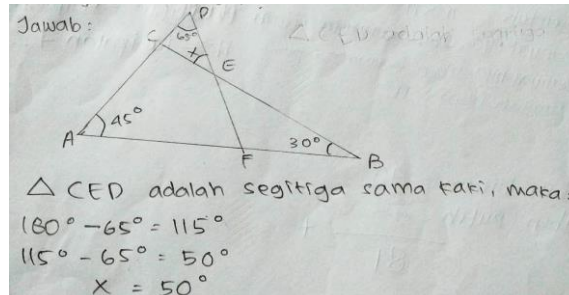 Jawab:
D
C
65°
x
E
45°
A
30°
F
B
△ CED adalah segitiga sama kaki, maka:
180° - 65° = 115°
115° - 65° = 50°
x = 50°